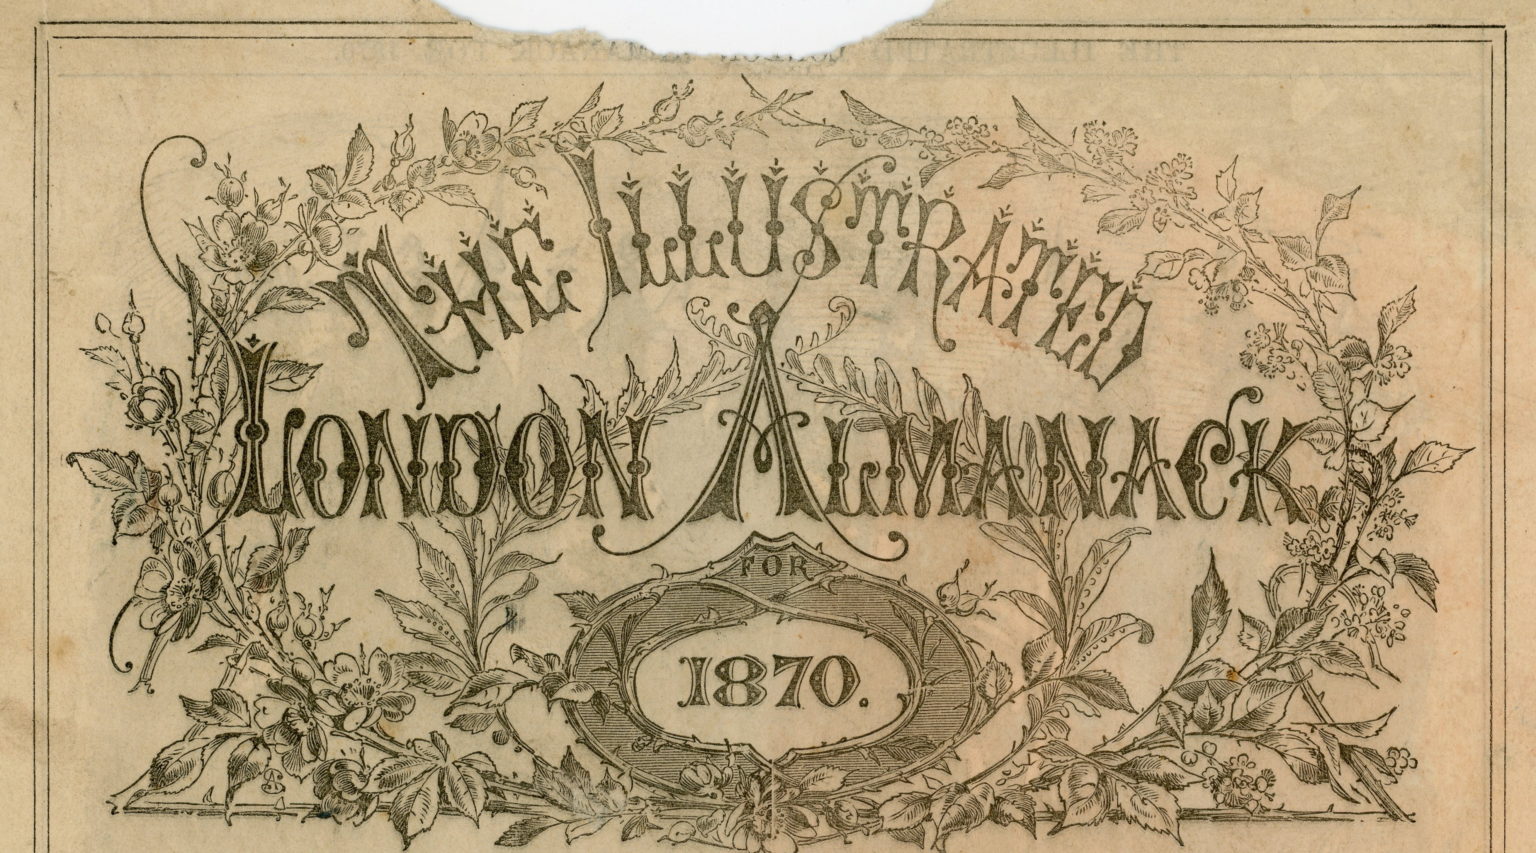 THE ILLUSTRATED
LONDON ALMANACK
FOR
1870.